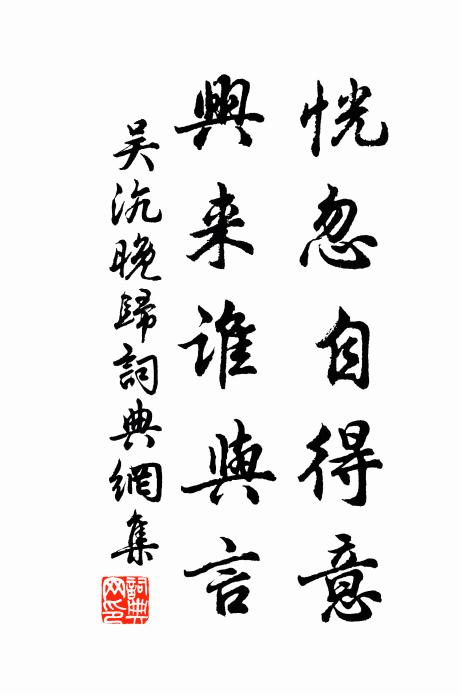 恍忽自得意
興来誰與言
吴沆晚歸詞典網集
詞典網印